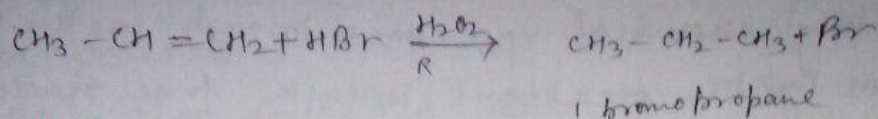 CH3 - CH = CH2 + HBr H2O2 R → CH3 - CH2 - CH3 + Br
1 bromopropane